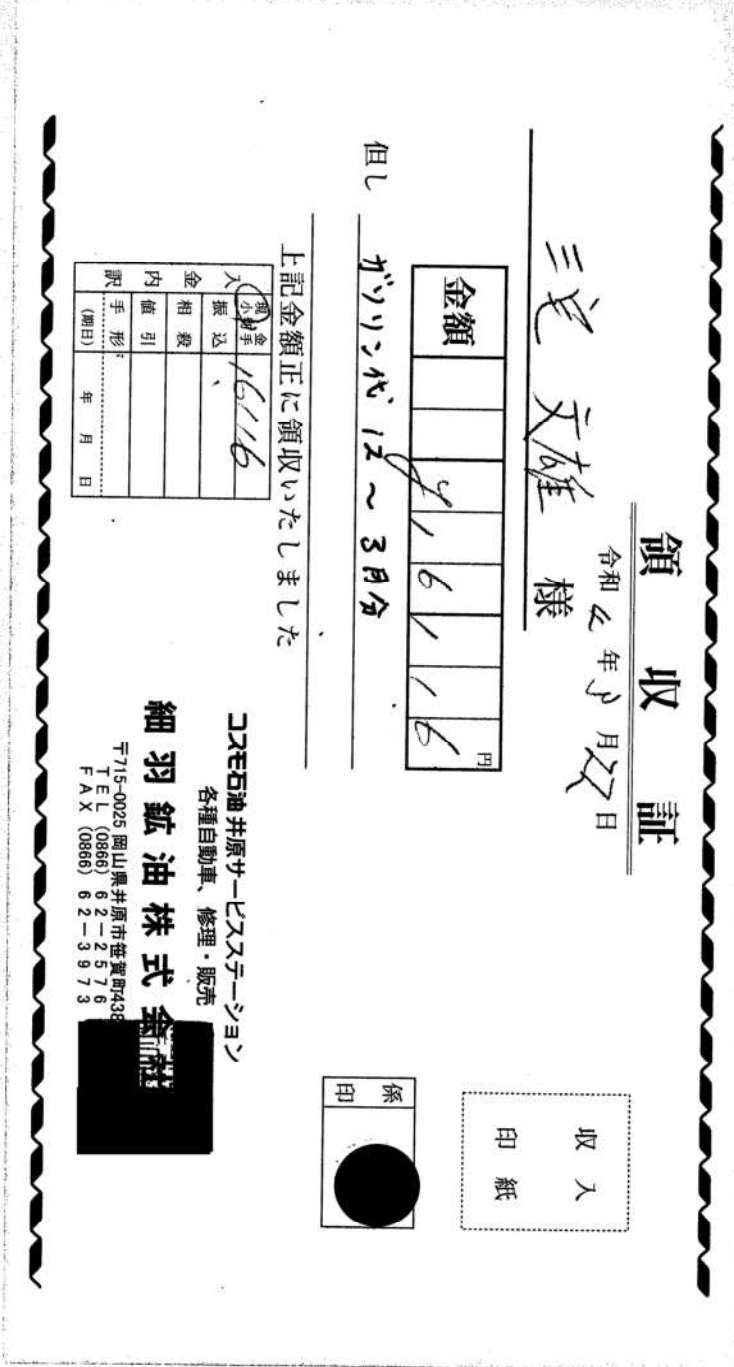 領収証
令和4年3月22日
三宅 文雄 様
金額 ¥16116円
但し ガソリン代 12～3月分
上記金額正に領収いたしました
入金内訳
現金 小切手 16116
振込
相殺
値引
手形
(期日) 年 月 日
コスモ石油 井原サービスステーション
各種自動車、修理・販売
細羽鉱油株式会社
〒715-0025 岡山県井原市笹賀町438
TEL (0866) 62-2576
FAX (0866) 62-3973
収入
印紙
係
印